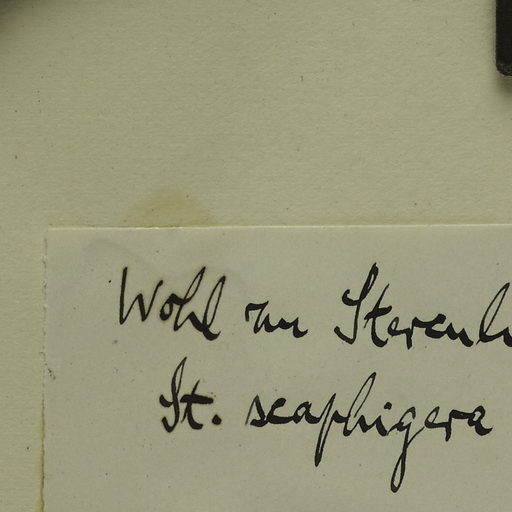 Wohl zu Sterculi
St. scaphigera